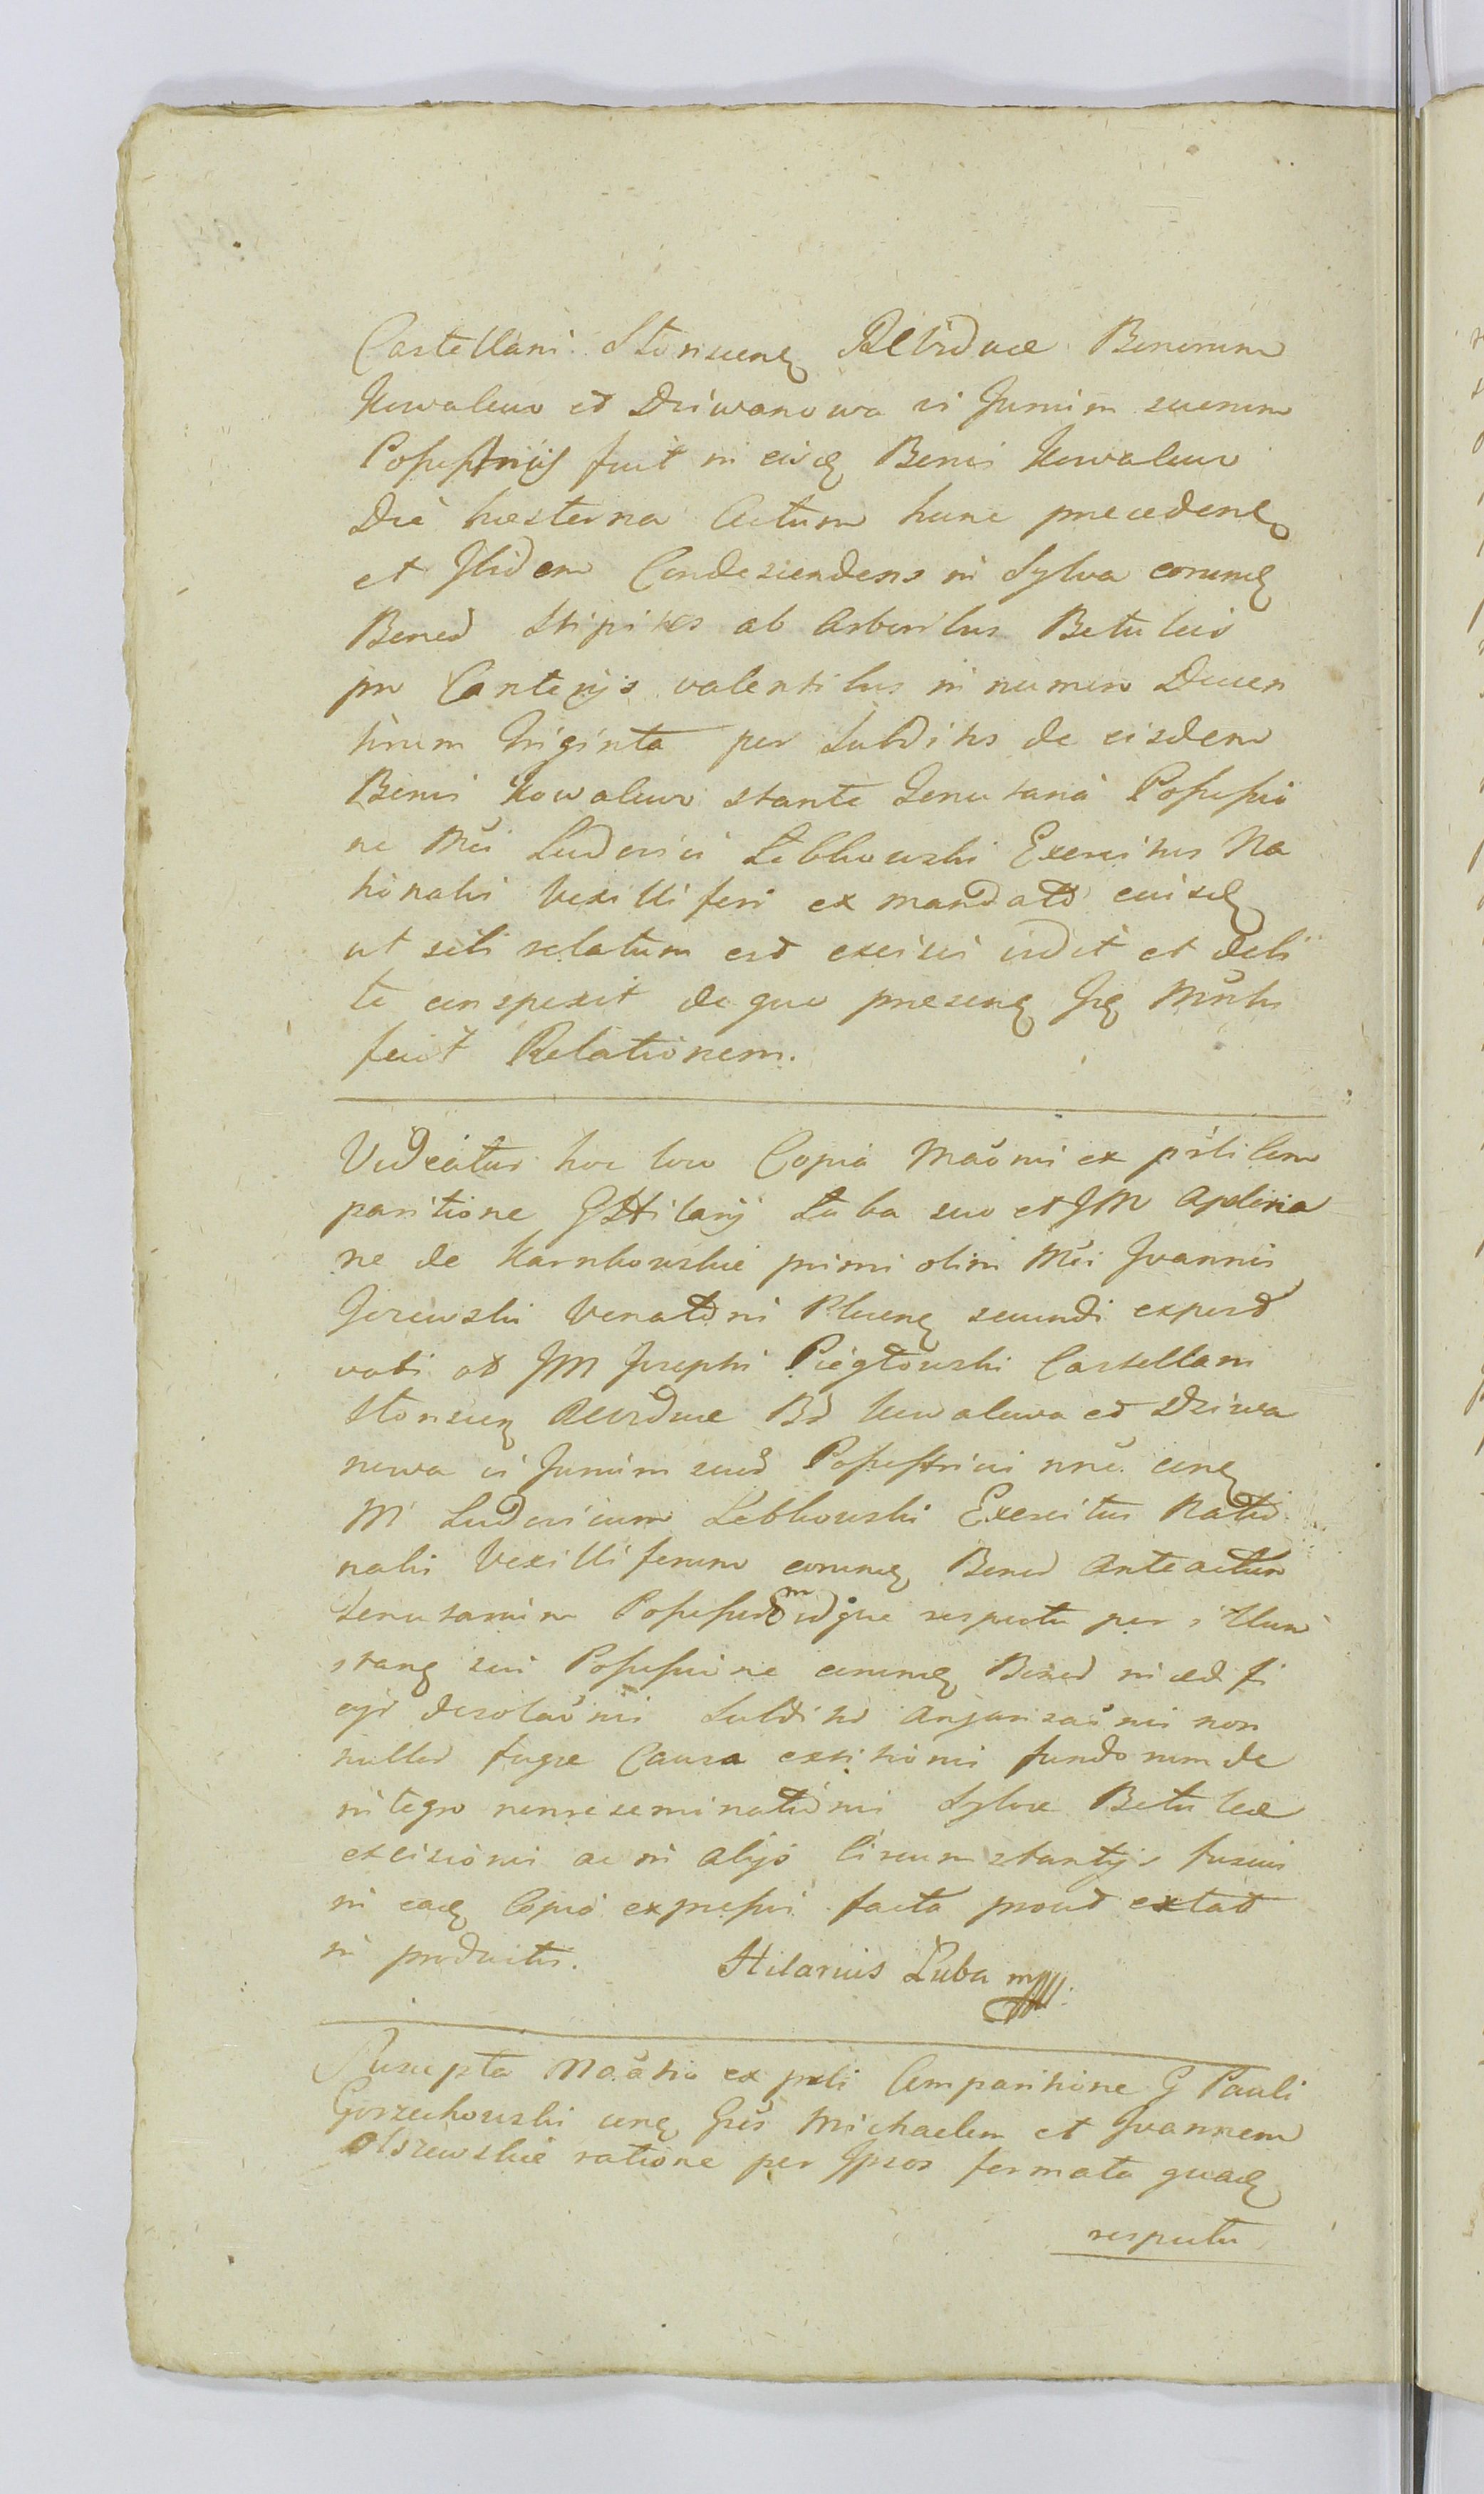 Castellani Słonscens Relictae Bonorum
Kowalewo et Dziwanowa vi Jurium suorum
Possessricis fuit in eisd Bonis Kowalewo
Die hesterna Actum hunc praecedens
et Ibidem Condescendens in Sylva eorumd
Bonod Stipites ab Arboribus Betuleis
pro Canterijs valentibus in numero Ducen
torum Triginta per Subditos de eisdem
Bonis Kowalewo stante Tenutaria Possessio
ne Mci Ludovici Lebkowski Exercitus Na
tionalis Vexilliferi ex mandato eiusd
ut sibi relatum est excisis vidit et debi
te conspexit de quo praesens Jes Mnrlis
fecit Relationem.
Videatur hoc loco Copia Maõnis ex prsli Com
paritione G Hilarij Luba suo et JM Apolina
ne de Karnkowskie primi olim Mci Joannis
Jezewski Venatoris Plocens secundi expost
voti ad JM Josephi Piegłowski Castellani
Słonscen Relictae Bd Kowalewa et Dziwa
nowa vi Jurium suod Possessricis nne cong
M Ludovicum Lebkowski Exercitus Natio
nalis Vexilliferum eorumd Bonod Anteactum
Tenutarium Possessorem idque respectu per illum
stang sui Possessione eorumd Bonod in aedifi
cijs desolaõnis Subditod Angarisaõnis non
nullod fugae Causa exsitionis fundorum de
integro nonreseminationis Sylvae Betuleae
excisionis ac in alijs Circumstantijs fusius
in ead Copia expressis facta prout extat
in productis. Hilarius Łuba mpp.
Suscepta Maõtio ex prsli Comparitione G Pauli
Gorzechowski cong Gres Michaelem et Joannem
Olszewskie ratione per Ipsos fermata quad
respectu